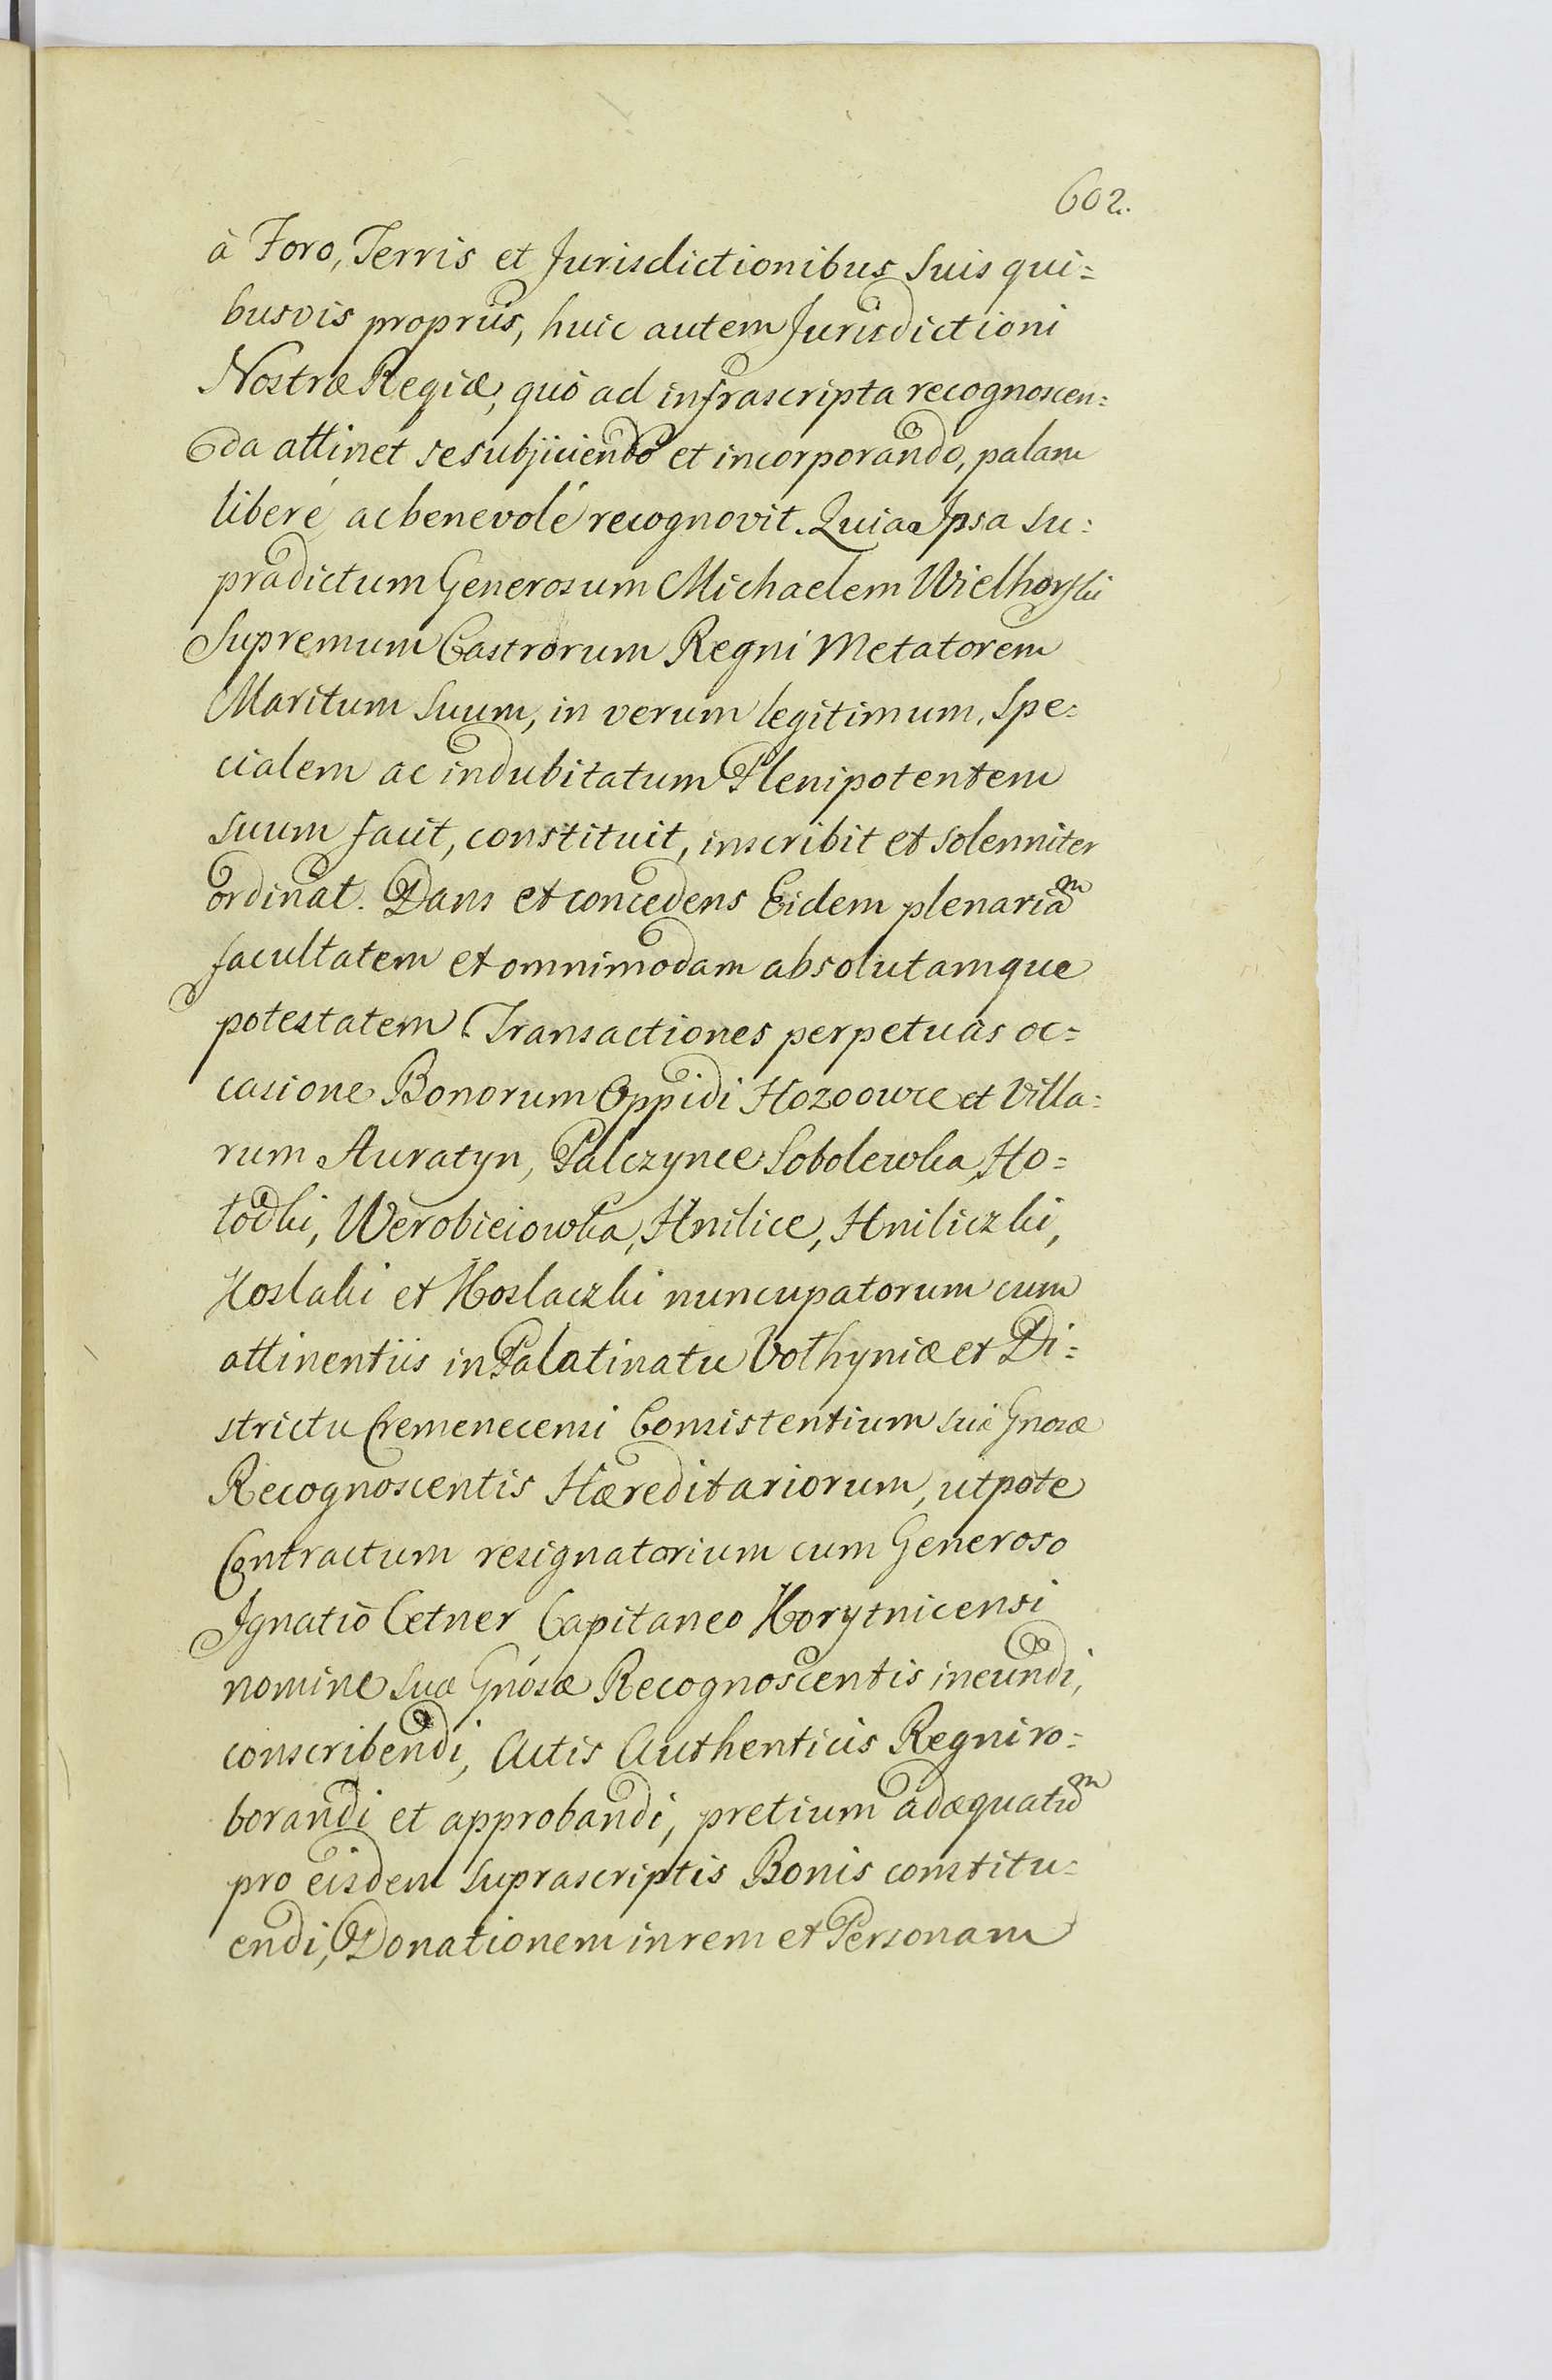 602.
à Foro, Terris et Jurisdictionibus Suis qui=
busvis propriis, huic autem Jurisdictioni
Nostræ Regiæ, quò ad infrascripta recognoscen=
da attinet se subjiciendo et incorporando, palam
liberè ac benevolè recognovit. Quia Ipsa Su=
pradictum Generosum Michaelem Wielhorski
Supremum Castrorum Regni Metatorem
Maritum Suum, in verum legitimum, Spe=
cialem ac indubitatum Plenipotentem
Suum facit, constituit, inscribit et solenniter
ordinat. Dans et concedens Eidem plenariam
facultatem et omnimodam absolutamque
potestatem Transactiones perpetuas oc=
casione Bonorum Oppidi Hozoowce et Villa=
rum Auratyn, Palczynce Sobolewka, Ho=
łodki, Werobieiowka, Hnilice, Hniliczki,
Koslaki et Koslaczki nuncupatorum cum
attinentiis in Palatinatu Volhyniæ et Di=
strictu Cremenecensi Consistentium suæ Gnosæ
Recognoscentis Hæreditariorum, utpote
Contractum resignatorium cum Generoso
Ignatio Cetner Capitaneo Korytnicensi
nomine suæ Gnosæ Recognoscentis ineundi,
conscribendi, Actis Authenticis Regni ro=
borandi et approbandi, pretium adæquatum
pro eisdem Suprascriptis Bonis constitu=
endi, Donationem in rem et Personam